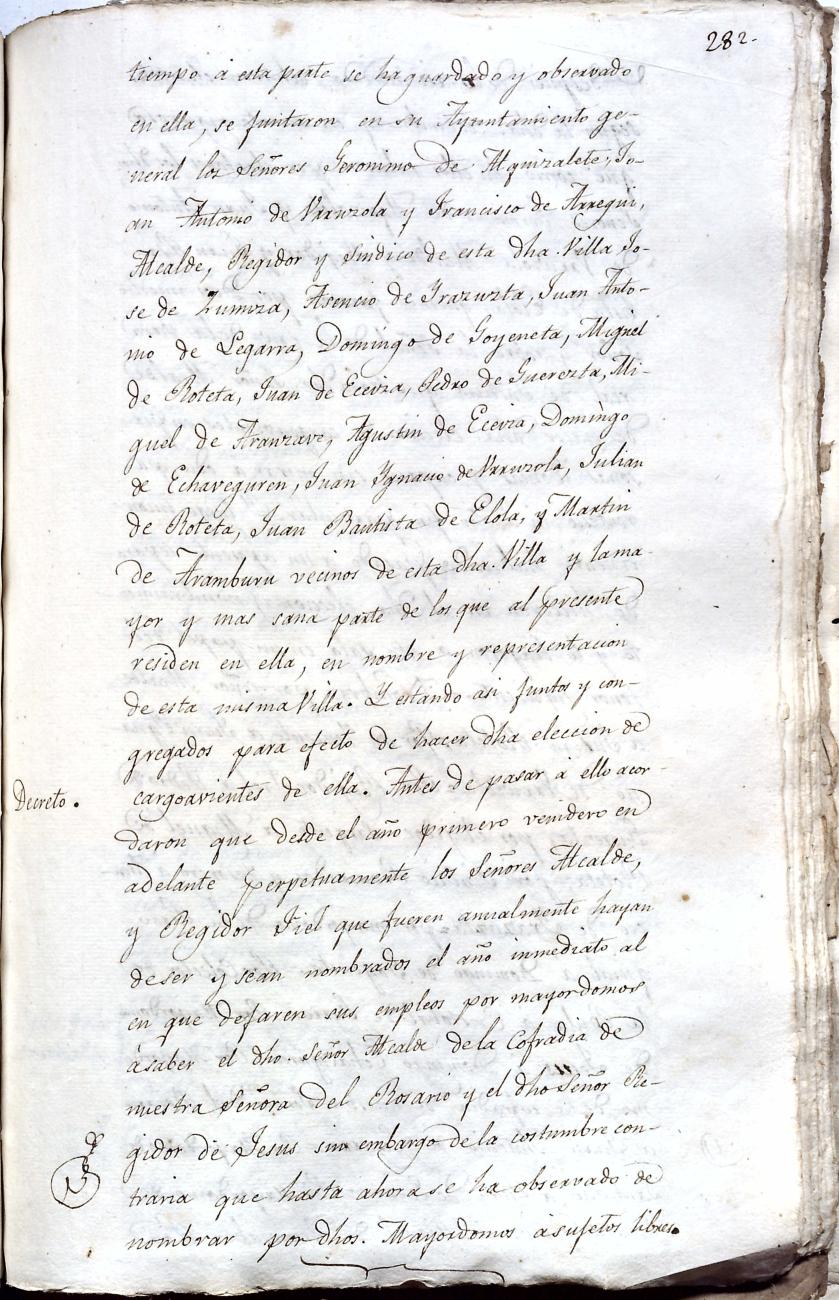 282.
tiempo á esta parte se ha guardado y observado
en ella, se juntaron en su Ayuntamiento ge-
neral los Señores Geronimo de Alquizalete, Jo-
an Antonio de Vranzola y Francisco de Arregui,
Alcalde, Regidor y Sindico de esta dha. Villa Jo-
se de Zumiza, Asencio de Yrazuzta, Juan Anto-
nio de Legarra, Domingo de Goyeneta, Miguel
de Roteta, Juan de Eceiza, Pedro de Guerezta, Mi-
guel de Aranzave, Agustin de Eceiza, Domingo
de Echaveguren, Juan Ygnacio de Vranzola, Julian
de Roteta, Juan Bautista de Elola, y Martin
de Aramburu vecinos de esta dha. Villa y la ma-
yor y mas sana parte de los que al presente
residen en ella, en nombre y representacion
de esta misma Villa. Y estando asi juntos y con-
gregados para efecto de hacer dha eleccion de
Decreto. cargoavientes de ella. Antes de pasar á ello acor-
daron que desde el año primero venidero en
adelante perpetuamente los Señores Alcalde,
y Regidor Fiel que fueren anualmente hayan
de ser y sean nombrados el año inmediato al
en que dejaren sus empleos por mayordomos
á saber el dho. Señor Alcalde de la Cofradia de
nuestra Señora del Rosario y el dho Señor Re-
gidor de Jesus sin embargo de la costumbre con-
traria que hasta ahora se ha observado de
nombrar por dhos. Mayordomos á sujetos libres.